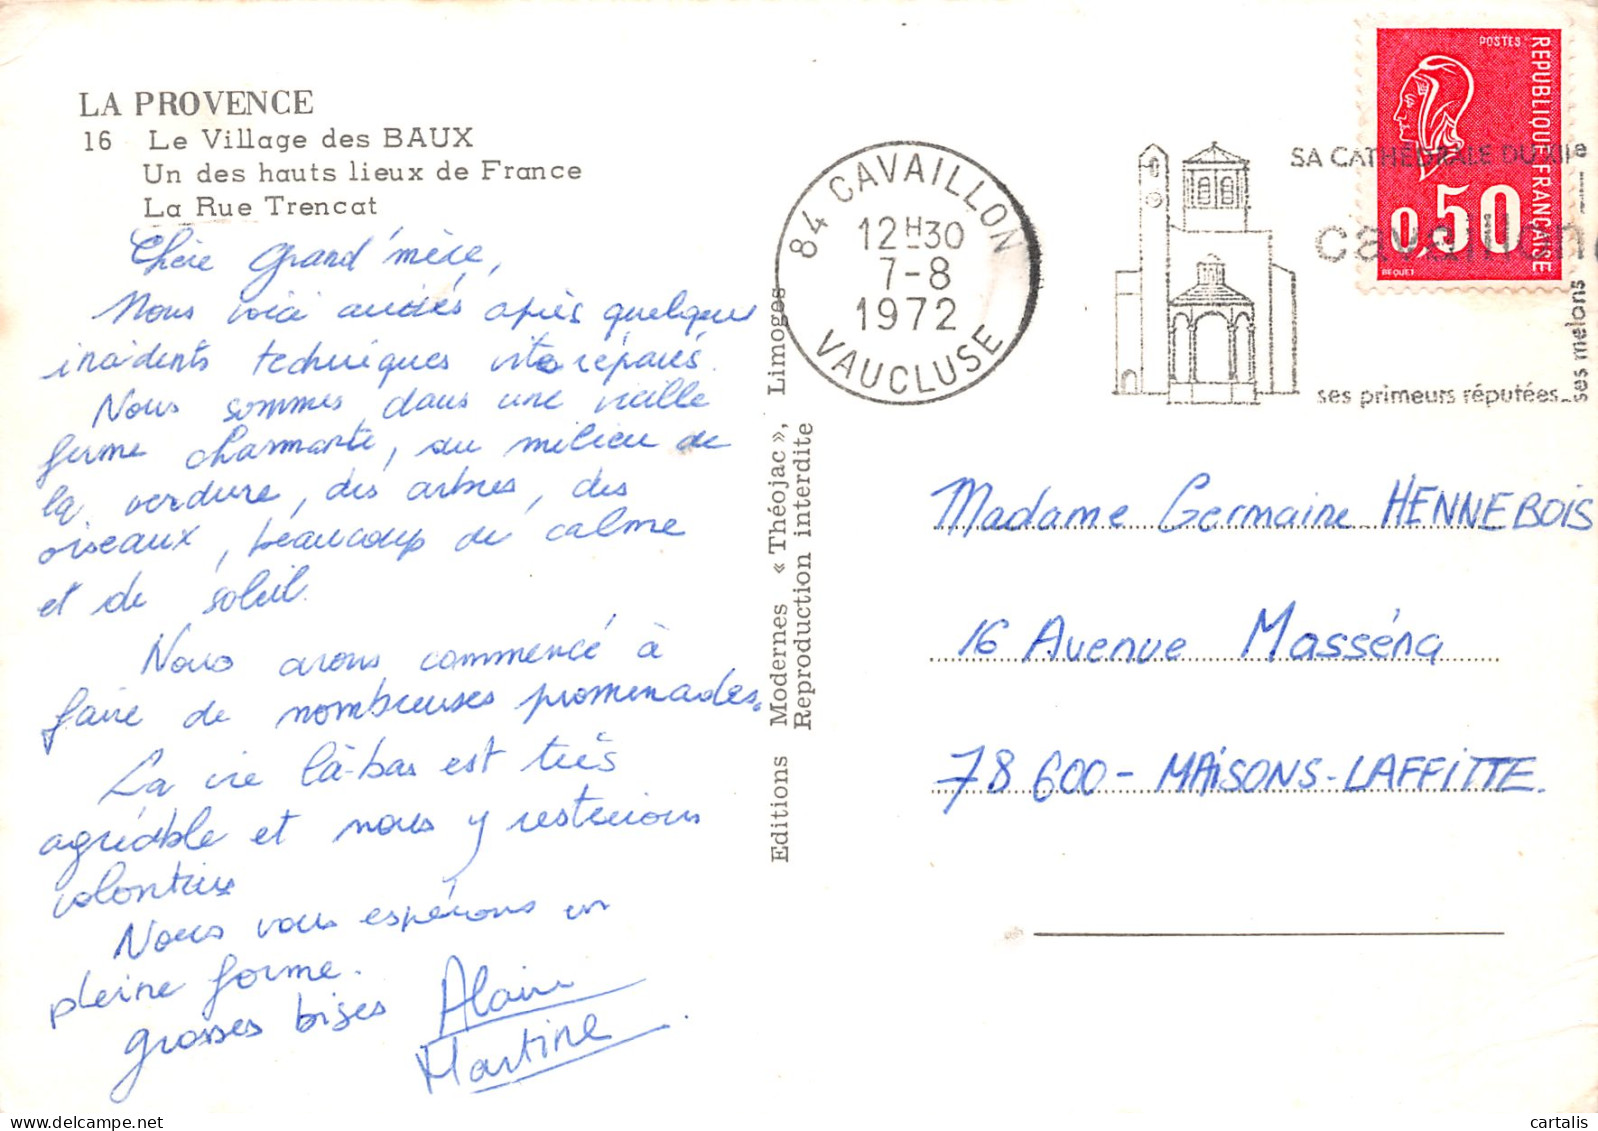 LA PROVENCE
16 Le Village des BAUX
Un des hauts lieux de France
La Rue Trencat
Chère Grand'mère,
Nous voici arrivés après quelques
incidents techniques vite réparés.
Nous sommes dans une vieille
ferme charmante, au milieu de
la verdure, des arbres, des
oiseaux, beaucoup de calme
et de soleil.
Nous avons commencé à
faire de nombreuses promenades.
La vie là-bas est très
agréable et nous y resterions
volontiers
Nous vous espérons en
pleine forme.
grosses bises Alain
Martine
Editions Modernes « Théojac », Limoges
Reproduction interdite
84 CAVAILLON
12H30
7-8
1972
VAUCLUSE
SA CATHÉDRALE DU XIIe
cavaillon
ses primeurs réputées_
ses melons
POSTES
REPUBLIQUE FRANÇAISE
0,50
BEQUET
Madame Germaine HENNEBOIS
16 Avenue Masséna
78600 - MAiSONS-LAFFITTE.
delcampe.net
cartalis